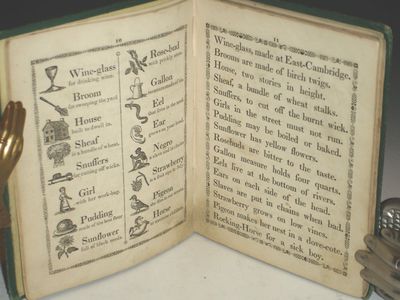 10
Wine-glass
for drinking wine.
Broom
for sweeping the yard
House
built to dwell in.
Sheaf
is a bundle of wheat.
Snuffers
for cutting off wicks.
Girl
with her work-bag.
Pudding
made of the best flour
Sunflower
full of black seeds.
Rose-bud
with prickly stem.
Gallon
Eel
that lives in the
Ear
Negro
Strawberry
Pigeon
Horse
11
Wine-glass, made at East-Cambridge.
Broom are made of birch twigs.
House, two stories in height.
Sheaf, a bundle of wheat stalks.
Snuffers, to cut off the burnt wick.
Girls in the street must not run.
Pudding may be boiled or baked.
Sunflower has yellow flowers.
Rosebuds are bitter to the taste.
Gallon measure holds four quarts.
Eels live at the bottom of rivers.
Ears on each side of the head.
Slaves are put in chains when bad.
Strawberry grows on low vines.
Pigeon makes her nest in a dove-cote.
Rocking-Horse for a sick boy.